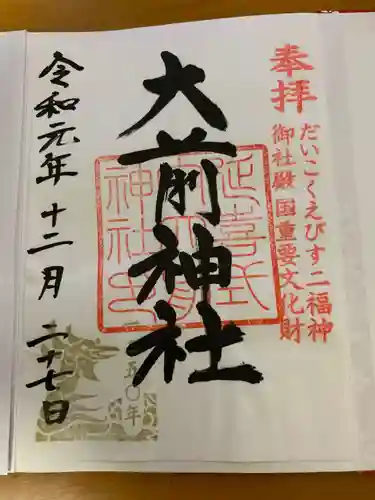 奉拝
だいこくえびす二福神
御社殿国重要文化財
大前神社
延喜式内大前神社
令和元年十二月二十七日
五〇年